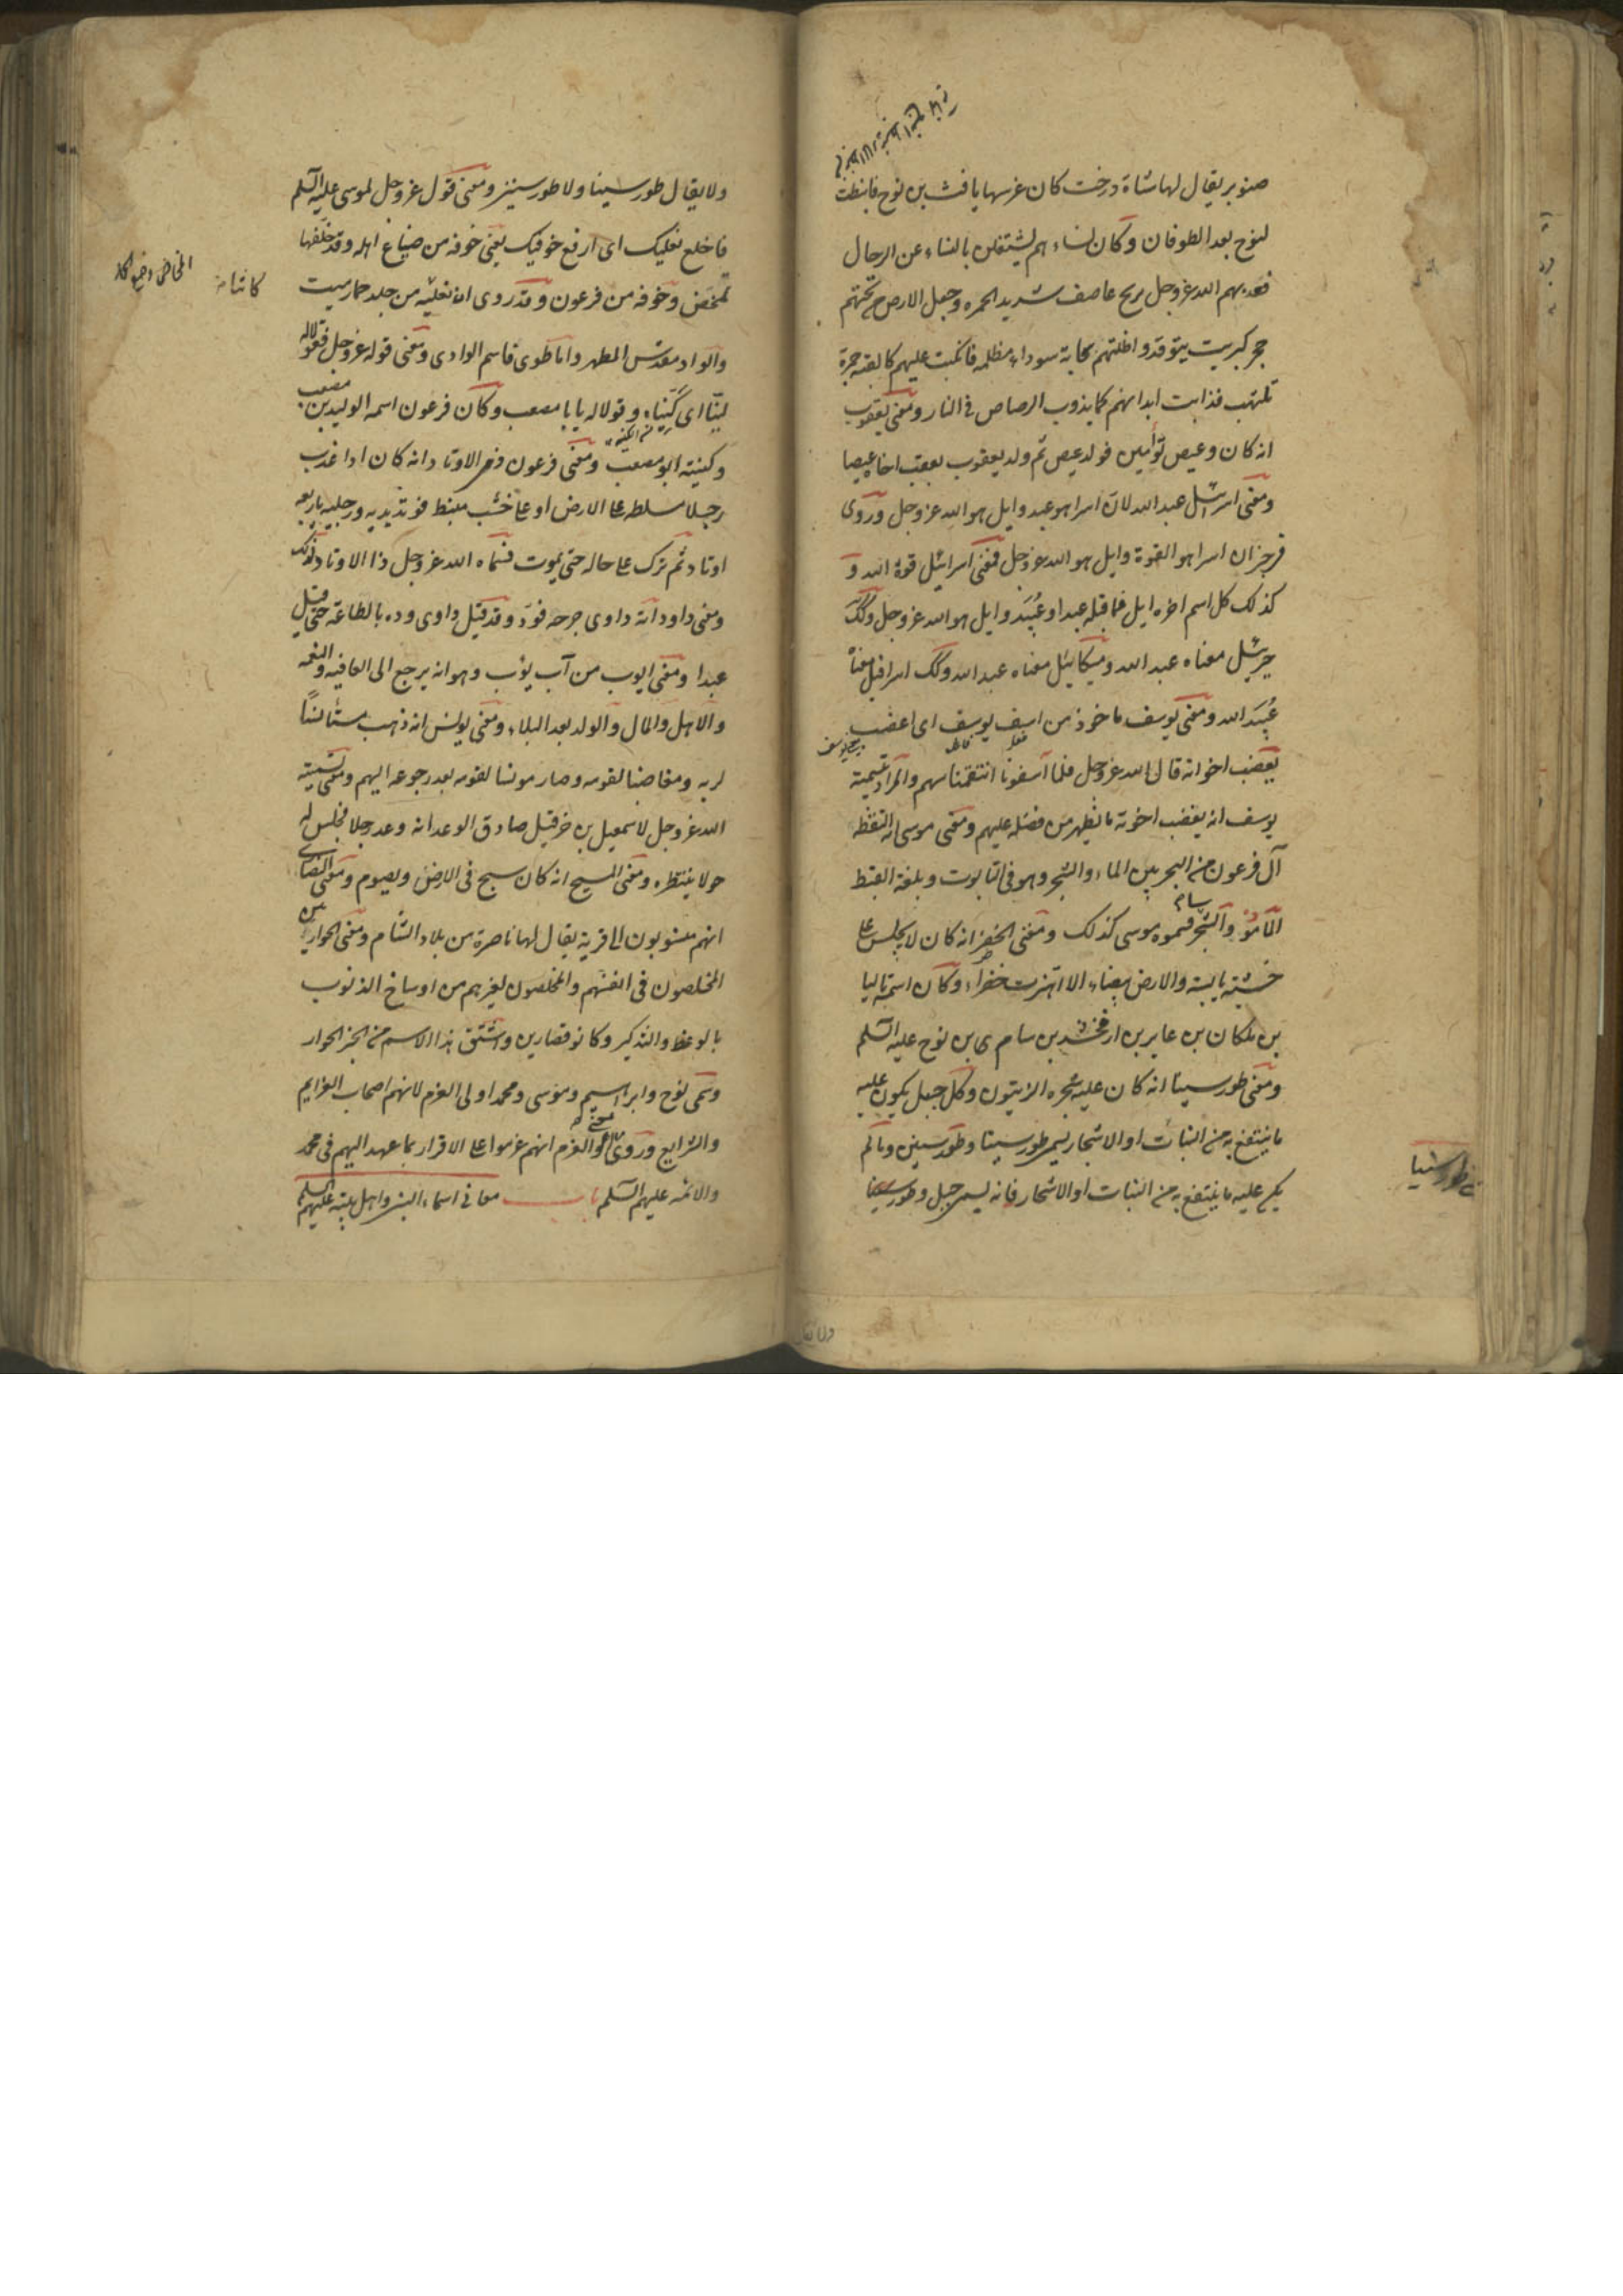 صنوبر يقال لها شاة درخت كان غرسها يافث بن نوح فانبطت
لنوح بعد الطوفان وكان نساءهم يشتغلن بالنساء عن الرجال
فعذبهم الله عز وجل بريح عاصف شديد الحمره وجعل الارض من تحتهم
حجر كبريت يتوقد واظلتهم سحابة سوداء مظلمه فانكبت عليهم كالقبه جمرة
تلتهب فذابت ابدانهم كما يذوب الرصاص فى النار ومعنى يعقوب
انه كان وعيص توأمين فولد عيص ثم ولد يعقوب يعقب اخاه عيصا
ومعنى اسرائيل عبد الله لان اسرا هو عبد وايل هو الله عز وجل وروى
فى خبر ان اسرا هو القوة وايل هو الله عز وجل فمعنى اسرائيل قوة الله و
كذلك كل اسم اخره ايل فما قبله عبد او عُبَيد وايل هو الله عز وجل وكك
جبرئيل معناه عبد الله وميكائيل معناه عبد الله وكك اسرافيل معناه
عُبَيد الله ومعنى يوسف ماخوذ من اسف يوسف اى اغضب
يغضب اخوانه قال الله عز وجل فلما آسفونا انتقمنا منهم والمراد بتسمية
يوسف انه يغضب اخوته ما يظهر من فضله عليهم ومعنى موسى انه التقطه
آل فرعون من البحر بين الماء والشجر وهو فى التابوت وبلغة القبط
الماء مُو والشجر سا فسموه موسى كذلك ومعنى الخضر انه كان لا يجلس على
خشبة يابسة والارض بيضاء الا اهتزت خضراء وكان اسمه تاليا
بن ملكان بن عابر بن ارفخشد بن سام بن نوح عليه السلم
ومعنى طور سينا انه كان عليه شجره الزيتون وكل جبل يكون عليه
ما ينتفع به من النبات او الاشجار يسمى طور سينا وطور سينين وما لم
يكن عليه ما ينتفع به من النبات او الاشجار فانه يسمى جبل وطور سينا
طور سينا
ولا يقال طور سينا ولا طور سينين ومعنى قول عز وجل لموسى عليه السلم
فاخلع نعليك اى ارفع خوفيك يعنى خوفه من ضياع اهله وقد خلفها
تمخض وخوفه من فرعون وقد روى ان نعليه من جلد حمار ميت
والواد مقدس المطهر واما طوى فاسم الوادى ومعنى قوله عز وجل فقولا له
لينا اى كنياه وقولا له يا با مصعب وكان فرعون اسمه الوليد بن مصعب
وكنيته ابو مصعب ومعنى فرعون ذى الاوتاد انه كان اذا عذب
رجلا بسطه على الارض او على خشب منبسط فوتد يديه ورجليه باربعه
اوتاد ثم ترك على حاله حتى يموت فسماه الله عز وجل ذا الاوتاد لذلك
ومعنى داود انه داوى جرحه فودّ وقد قيل داوى وده بالطاعة حتى قيل
عبدا ومعنى ايوب من آب يؤب وهو انه يرجع الى العافيه والنعمه
والاهل والمال والولد بعد البلاء ومعنى يونس انه ذهب مستأنسًا
لربه ومغاضبا لقومه وصار مونسا لقومه بعد رجوعه اليهم ومعنى تسميته
الله عز وجل لاسمعيل بن حزقيل صادق الوعد انه وعد رجلا فجلس له
حولا ينتظره ومعنى المسيح انه كان يسيح فى الارض ويصوم ومعنى النصارى
انهم منسوبون الى قرية يقال لها ناصرة من بلاد الشام ومعنى الحواريين
المخلصون فى انفسهم والمخلصون لغيرهم من اوساخ الذنوب
بالوعظ والتذكير وكانو قصارين واشتق هذا الاسم من الخبز الحوار
وسمى نوح وابراهيم وموسى ومحمد اولى العزم لانهم اصحاب العزايم
والشرايع وروى معنى اولو العزم انهم عزموا على الاقرار بما عهد اليهم فى محمد
والائمه عليهم السلم باب معانى اسماء النبى واهل بيته عليهم السلم